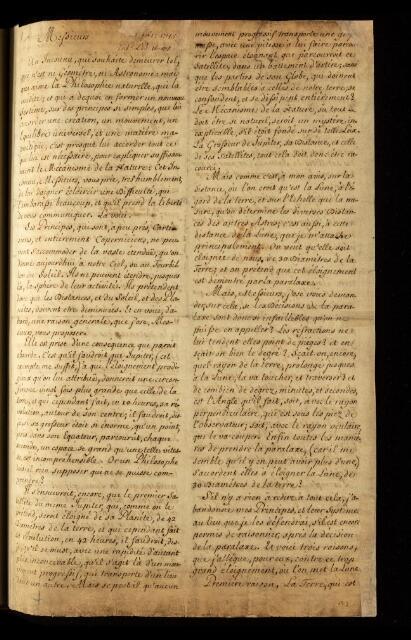 Messieurs
Un Inconnu, qui souhaite demeurer tel,
qui n'est ni Geometre, ni Astronome; mais
qui aime la Philosophie naturelle, qui la
et qui a dequoi en former un nouveau
sisteme, sur des principes si simples, que
accorder une creation, un mouvement, un
Equilibre universel, et une matiere
, c'est presque lui accorder tout ce
qui lui est necessaire, pour expliquer suffisam-
ment le Mécanisme de la Nature: cet In-
connu, Messieurs, vous prie, tres humblement
de lui daigner éclaircir une difficulté, qui
l'embarasse beaucoup, et qu'il prend la liberté
de vous communiquer. La voici.
Ses Principes, qui sont, a peu près, Carte-
siens, et entierement Coperniciens, ne peu-
vent s'accommoder de la vaste etendüe, qu'on
donne aujourd'hui à notre Ciel, ou au Tourbil-
lon du Soleil. Ils ne peuvent etendre, jusques
la, la sphere de leur activité. Ils pretendent
que les Distances, et du Soleil, et des
, doivent etre diminuées. Et en voici, d'a-
bord, une raison generale, que j'ose, Mes-
sieurs, vous proposer.
Elle est prise d'une consequence qui paroit
absurde. C'est qu'il faudroit que Jupiter, (cet
exemple me suffit,) à que l'eloignement prodi-
gieux qu'on lui attribue, donneroit une circon-
ference vingt fois plus grande que celle de la
, et qui cependant fait, en 10 heures, sa re-
volution, autour de son centre; il faudroit, dis-
je, sa grosseur étant si énorme, qu'un point,
pris dans son Equateur, parcourut, chaque
, un espace si grand qu'une telle vites-
se est incomprehensible. Or un Philosophe
doit il rien supposer qui ne se puisse com-
prendre?
Il s'ensuivroit, encore, que le premier Sa-
tellite du même Jupiter, qui, comme on le
, seroit eloigné de sa Planete, de 42
Diametres de la terre, et qui cependant fait
sa revolution, en 42 heures, il faudroit, dis-
je, qu'il se mût, avec une rapidité d'autant
plus inconcevable, qu'il s'agit là d'un mou-
vement progressif, qui transporte d'un lieu
dans un autre. Mais se peut-il qu'aucun
mouvement progressif transporte une
, avec une vitesse à lui faire parcou-
rir l'espace étonnant que parcourent ces
Satellites, dans un battement d'artere, sans
que les parties de son Globe, qui doivent
être semblables à celles de notre terre, se
confondent, et se dissipent entierement?
Le Mécanisme de la Nature, où tout
doit être si naturel, seroit un mistere, in-
explicable, s'il étoit fondé sur de telles Loix.
La Grosseur de Jupiter, sa Distance, et celle
de ses Satellites, tout cela doit donc être ra-
courci.
Mais comme c'est, à mon avis, sur la
distance, ou l'on croit qu'est la Lune, à l'é-
gard de la terre, et sur l'Echelle que la me-
sure, qu'on détermine les diverses Distan-
ces des autres Astres, c'est aussi, à cette
distance de la Lune, que je m'attache
principalement. On veut qu'elle soit
éloignée de nous, de 30 Diametres de la
Terre; et on pretend que cet éloignement
est démontré par la paralaxe.
Mais, Messieurs, j'ose vous deman-
der, sur cela, si les décisions de la para-
laxe sont donc si infaillibles qu'on ne
puisse en appeller? Les refractions ne
lui tendent elles point de pieges? et en
sçait on bien le degré? Sçait on, encore,
quel rayon de la Terre, prolongé jusques
à la Lune, la va toucher, et traverser? et
de combien de degrez, minutes, et secondes,
est l'Angle qu'il fait, soit, avec le rayon
perpendiculaire, qui est sous les piez de
l'observateur; soit, avec le rayon oculaire
qui le va couper? Enfin toutes les manie-
res de prendre la paralaxe, (car il me
semble qu'il y en peut avoir plus d'une,)
s'accordent elles a éloigner la Lune, de
30 Diametres de la terre?
S'il n'y a rien à redire à tout cela, j'a-
bandonne mes Principes, et leur sisteme
au lieu que je les défendrai, s'il est encore
permis de raisonner, après la décision
de la paralaxe. Et voici trois raisons,
que j'allegue, pour eux, contre ce trop
grand éloignement, où l'on met la Lune.
Premiere raison. La Terre, qui est